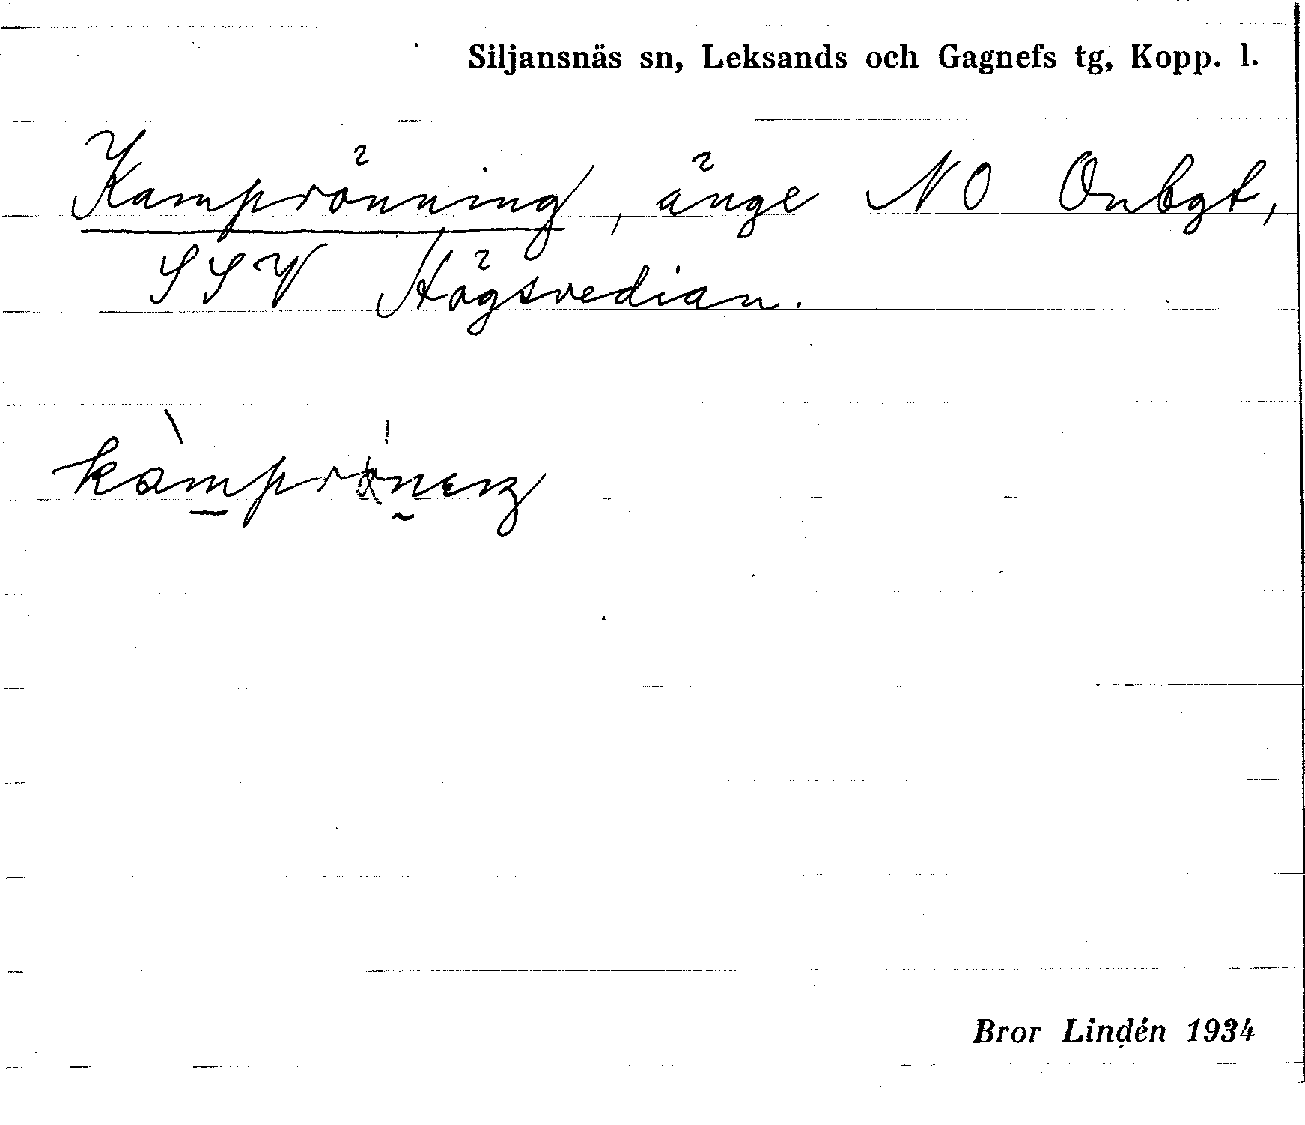 Siljansnäs sn, Leksands och Gagnefs tg, Kopp. l.
Kamprönning, änge NO Onbgt,
SSV Högsvedian.
Bror Lindén 1934